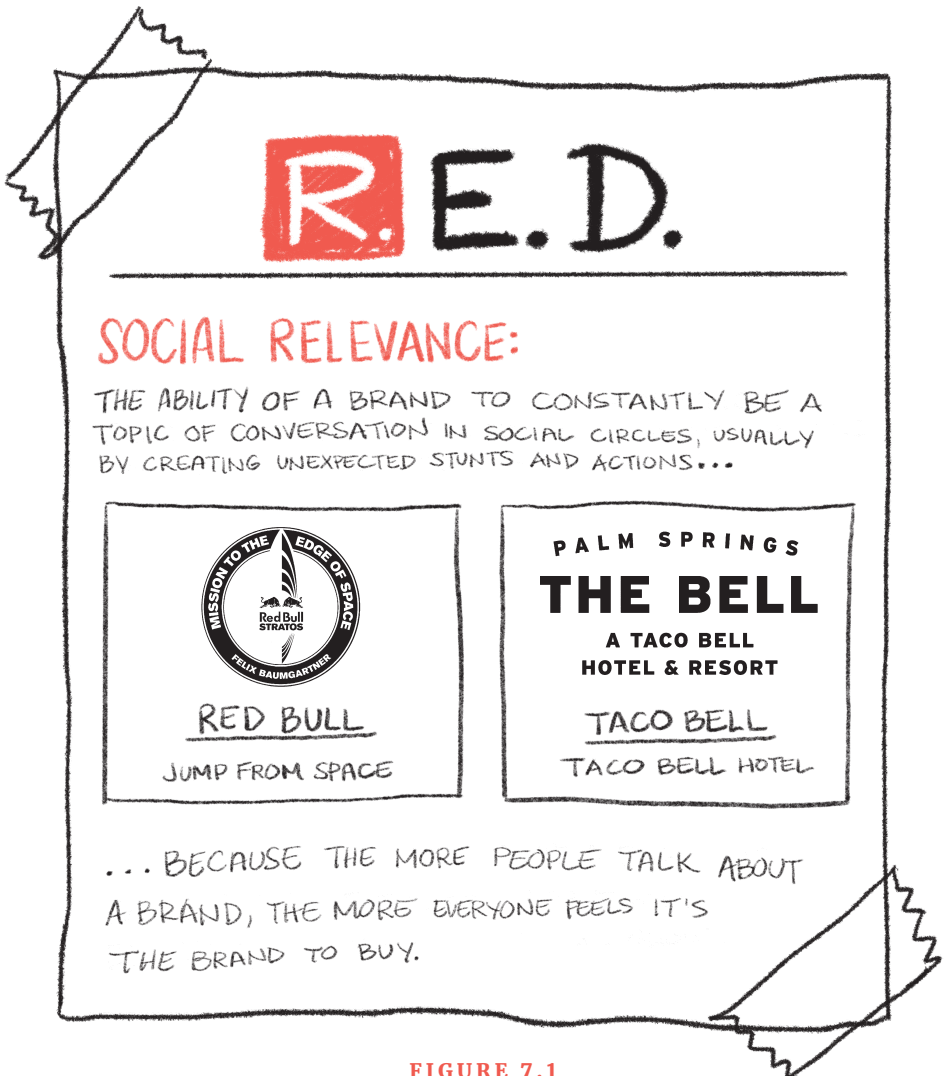 R. E. D.
SOCIAL RELEVANCE:
THE ABILITY OF A BRAND TO CONSTANTLY BE A
TOPIC OF CONVERSATION IN SOCIAL CIRCLES, USUALLY
BY CREATING UNEXPECTED STUNTS AND ACTIONS...
MISSION TO THE EDGE OF SPACE
Red Bull
STRATOS
FELIX BAUMGARTNER
RED BULL
JUMP FROM SPACE
PALM SPRINGS
THE BELL
A TACO BELL
HOTEL & RESORT
TACO BELL
TACO BELL HOTEL
...BECAUSE THE MORE PEOPLE TALK ABOUT
A BRAND, THE MORE EVERYONE FEELS IT'S
THE BRAND TO BUY.
FIGURE 7.1